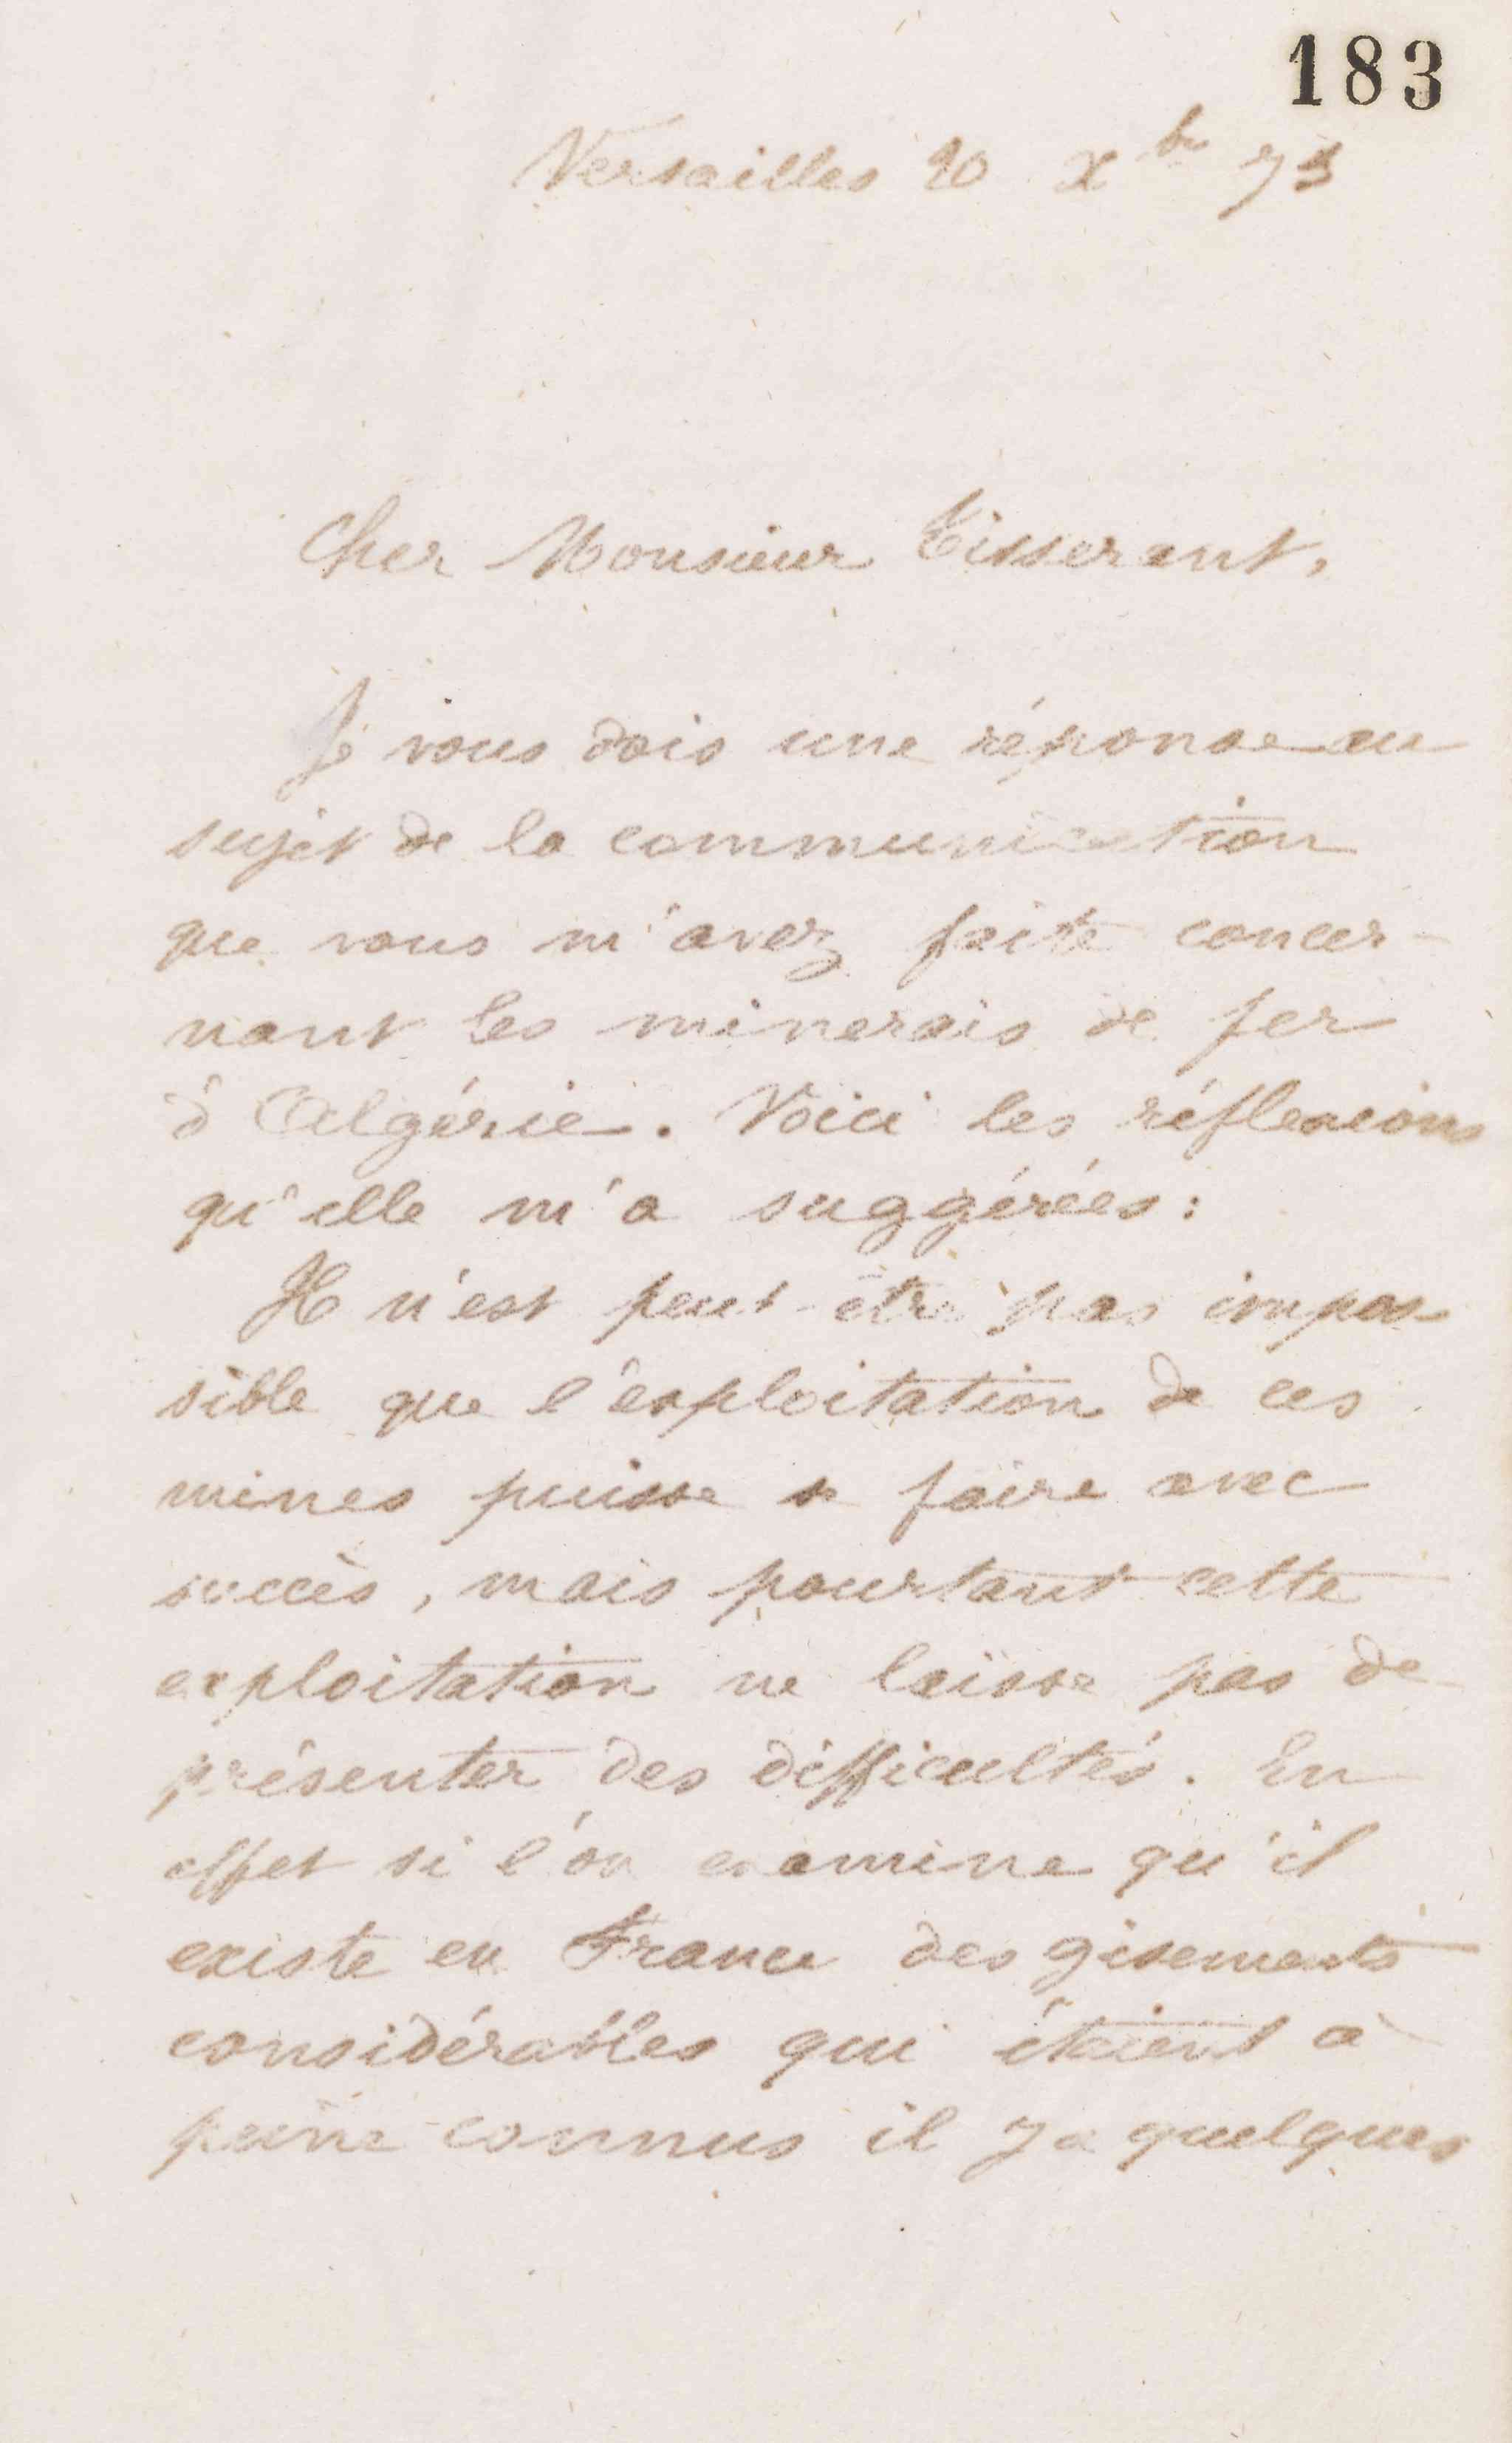 183
Versailles 20 Xbre 73
Cher Monsieur Tisserant,
Je vous dois une réponse au
sujet de la communication
que vous m'avez faite concer-
nant les minerais de fer
d'Algérie. Voici les réflexions
qu'elle m'a suggérées :
Il n'est peut-être pas impos-
sible que l'exploitation de ces
mines puisse se faire avec
succès, mais pourtant cette
exploitation ne laisse pas de
présenter des difficultés. En
effet si l'on examine qu'il
existe en France des gisements
considérables qui étaient à
peine connus il y a quelques